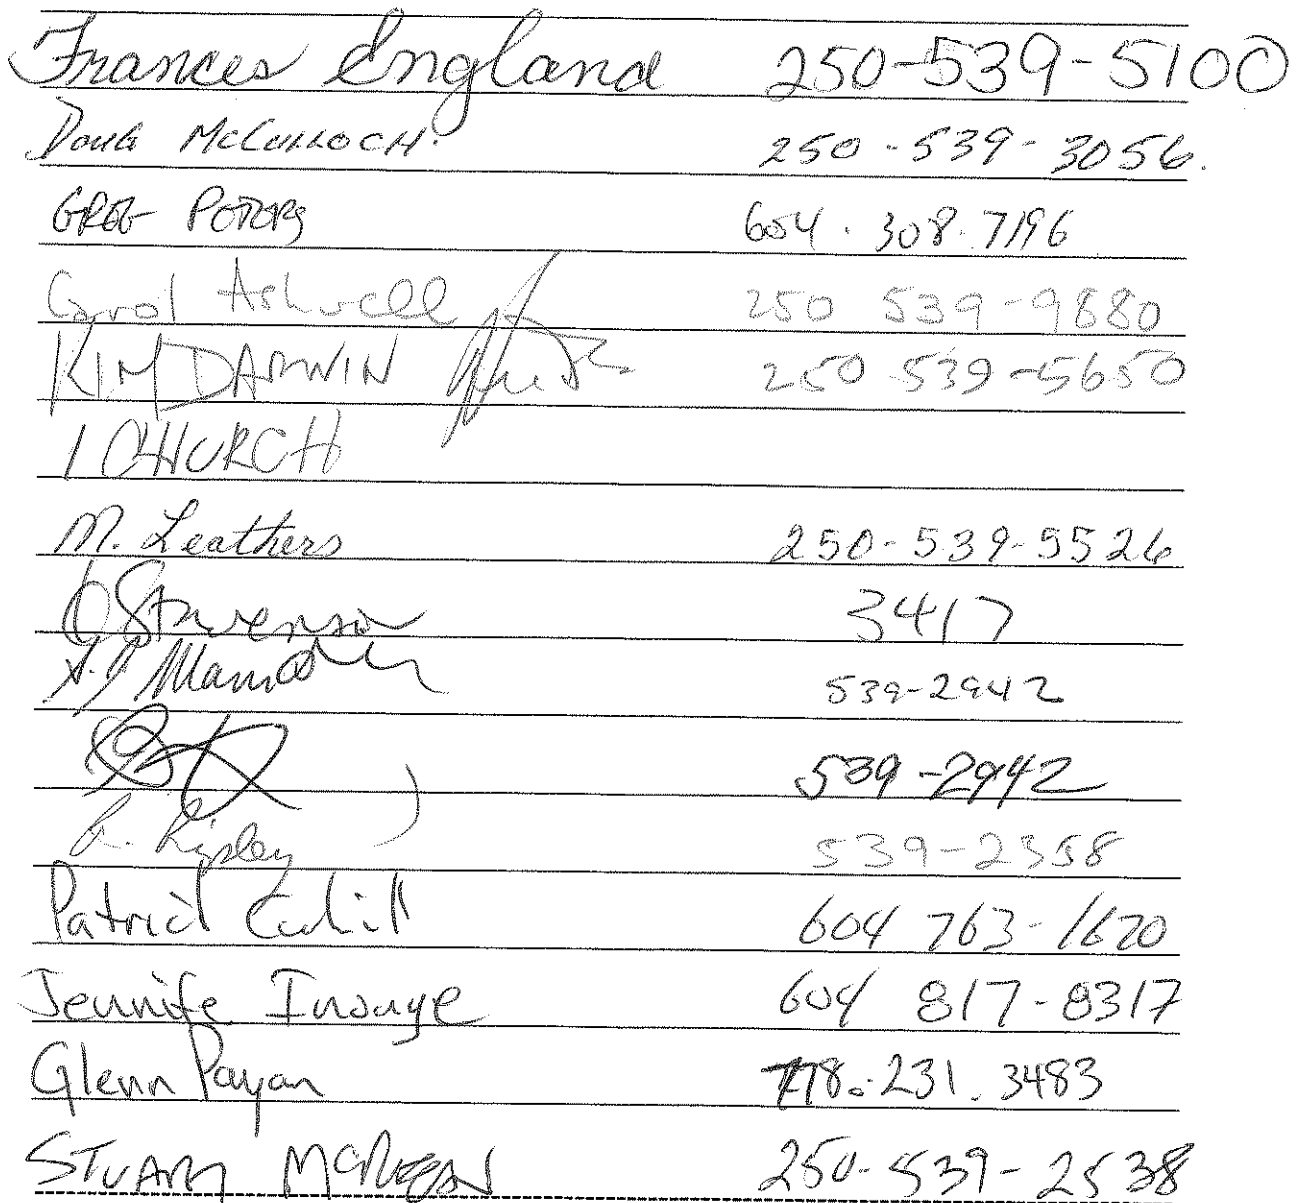 Frances England 250-539-5100
Doug McCulloch. 250-539-3056.
GREG PETERS 604.308.7196
Carol Ashwell 250 539-9880
KIM DARWIN 250 539-5650
I CHURCH
M. Leathers 250-539-5526
Stevenson 3417
539-2942
539-2942
R. Ripley 539-2358
Patrick Cahill 604 763-1670
Jennife Inouye 604 817-8317
Glenn Payan 778.231.3483
STUART 250-539-2538